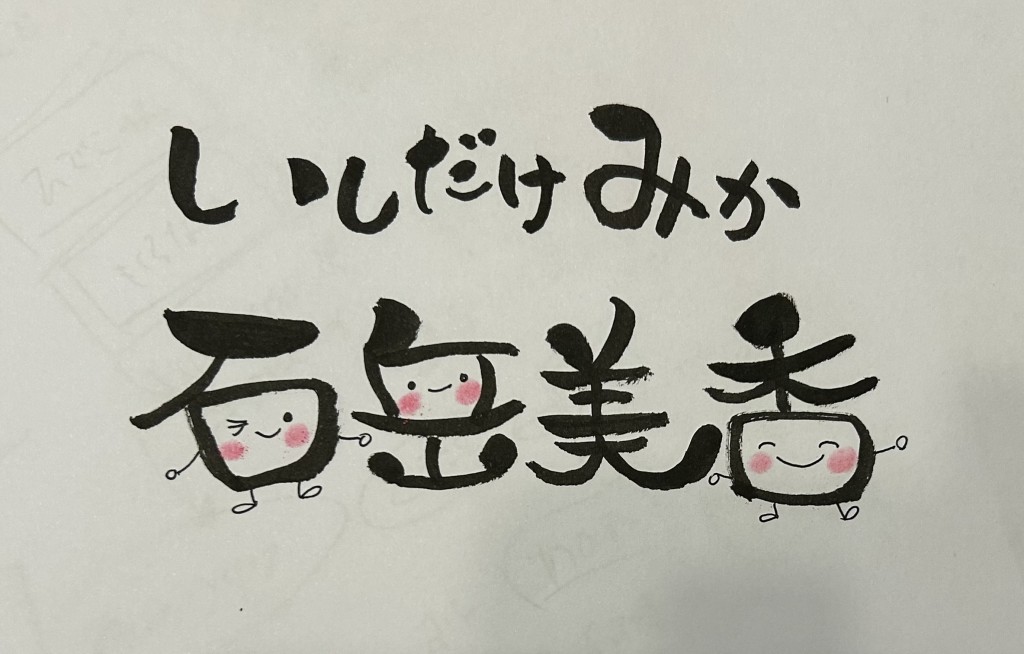 いしだけみか
石岳美香